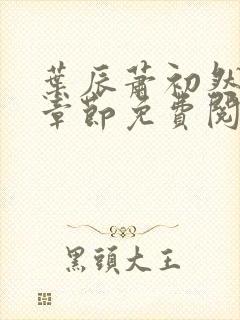 葉辰蕭初然
章節免費閱
黑頭大王